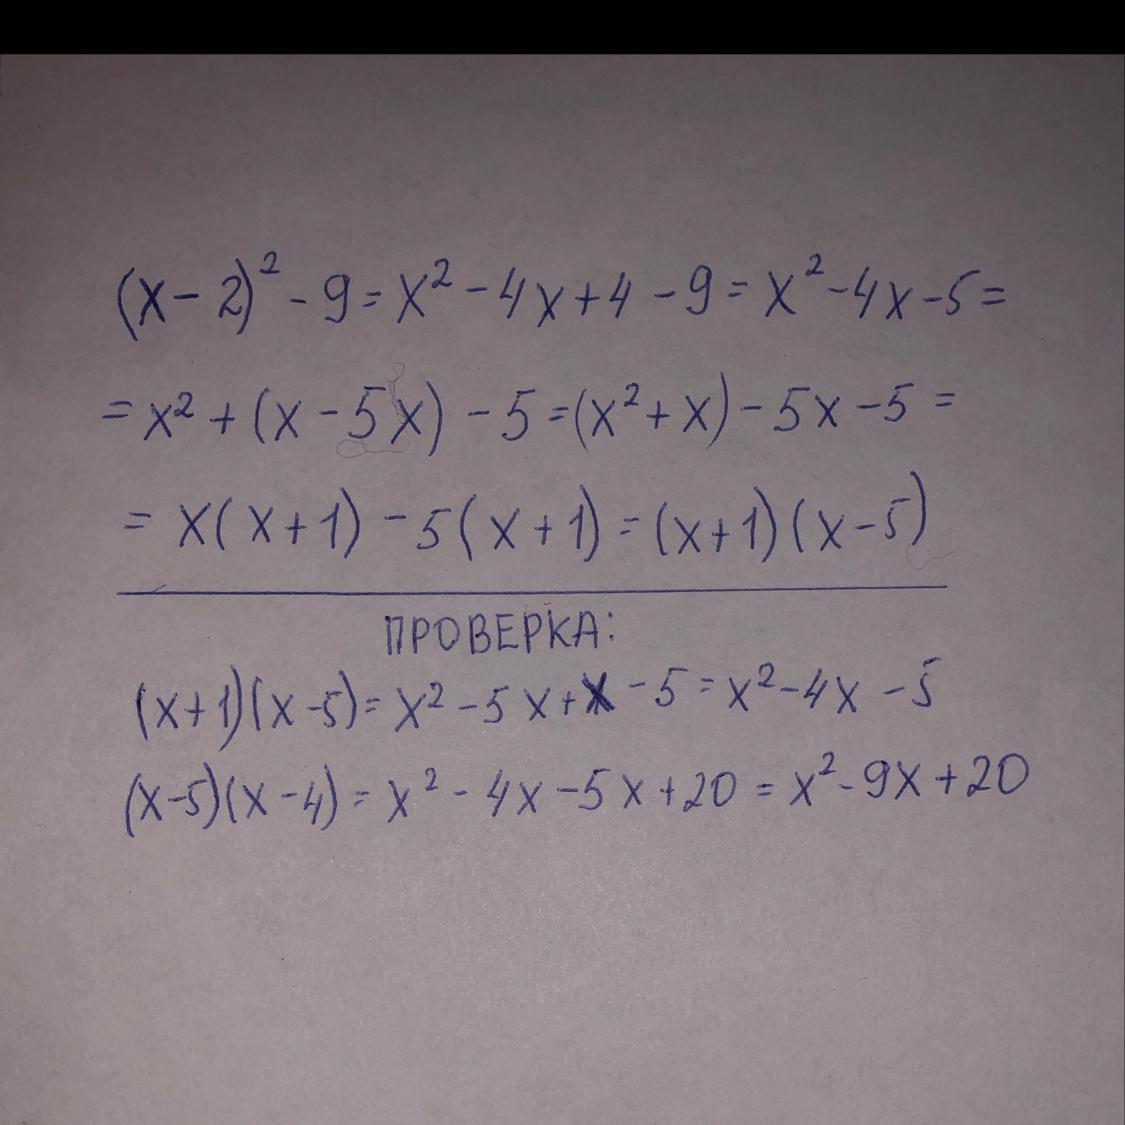 (x-2)² - 9 = x² - 4x + 4 - 9 = x² - 4x - 5 =
= x² + (x - 5x) - 5 = (x² + x) - 5x - 5 =
= x(x+1) - 5(x+1) = (x+1)(x-5)
ПРОВЕРКА:
(x+1)(x-5) = x² - 5x + x - 5 = x² - 4x - 5
(x-5)(x-4) = x² - 4x - 5x + 20 = x² - 9x + 20